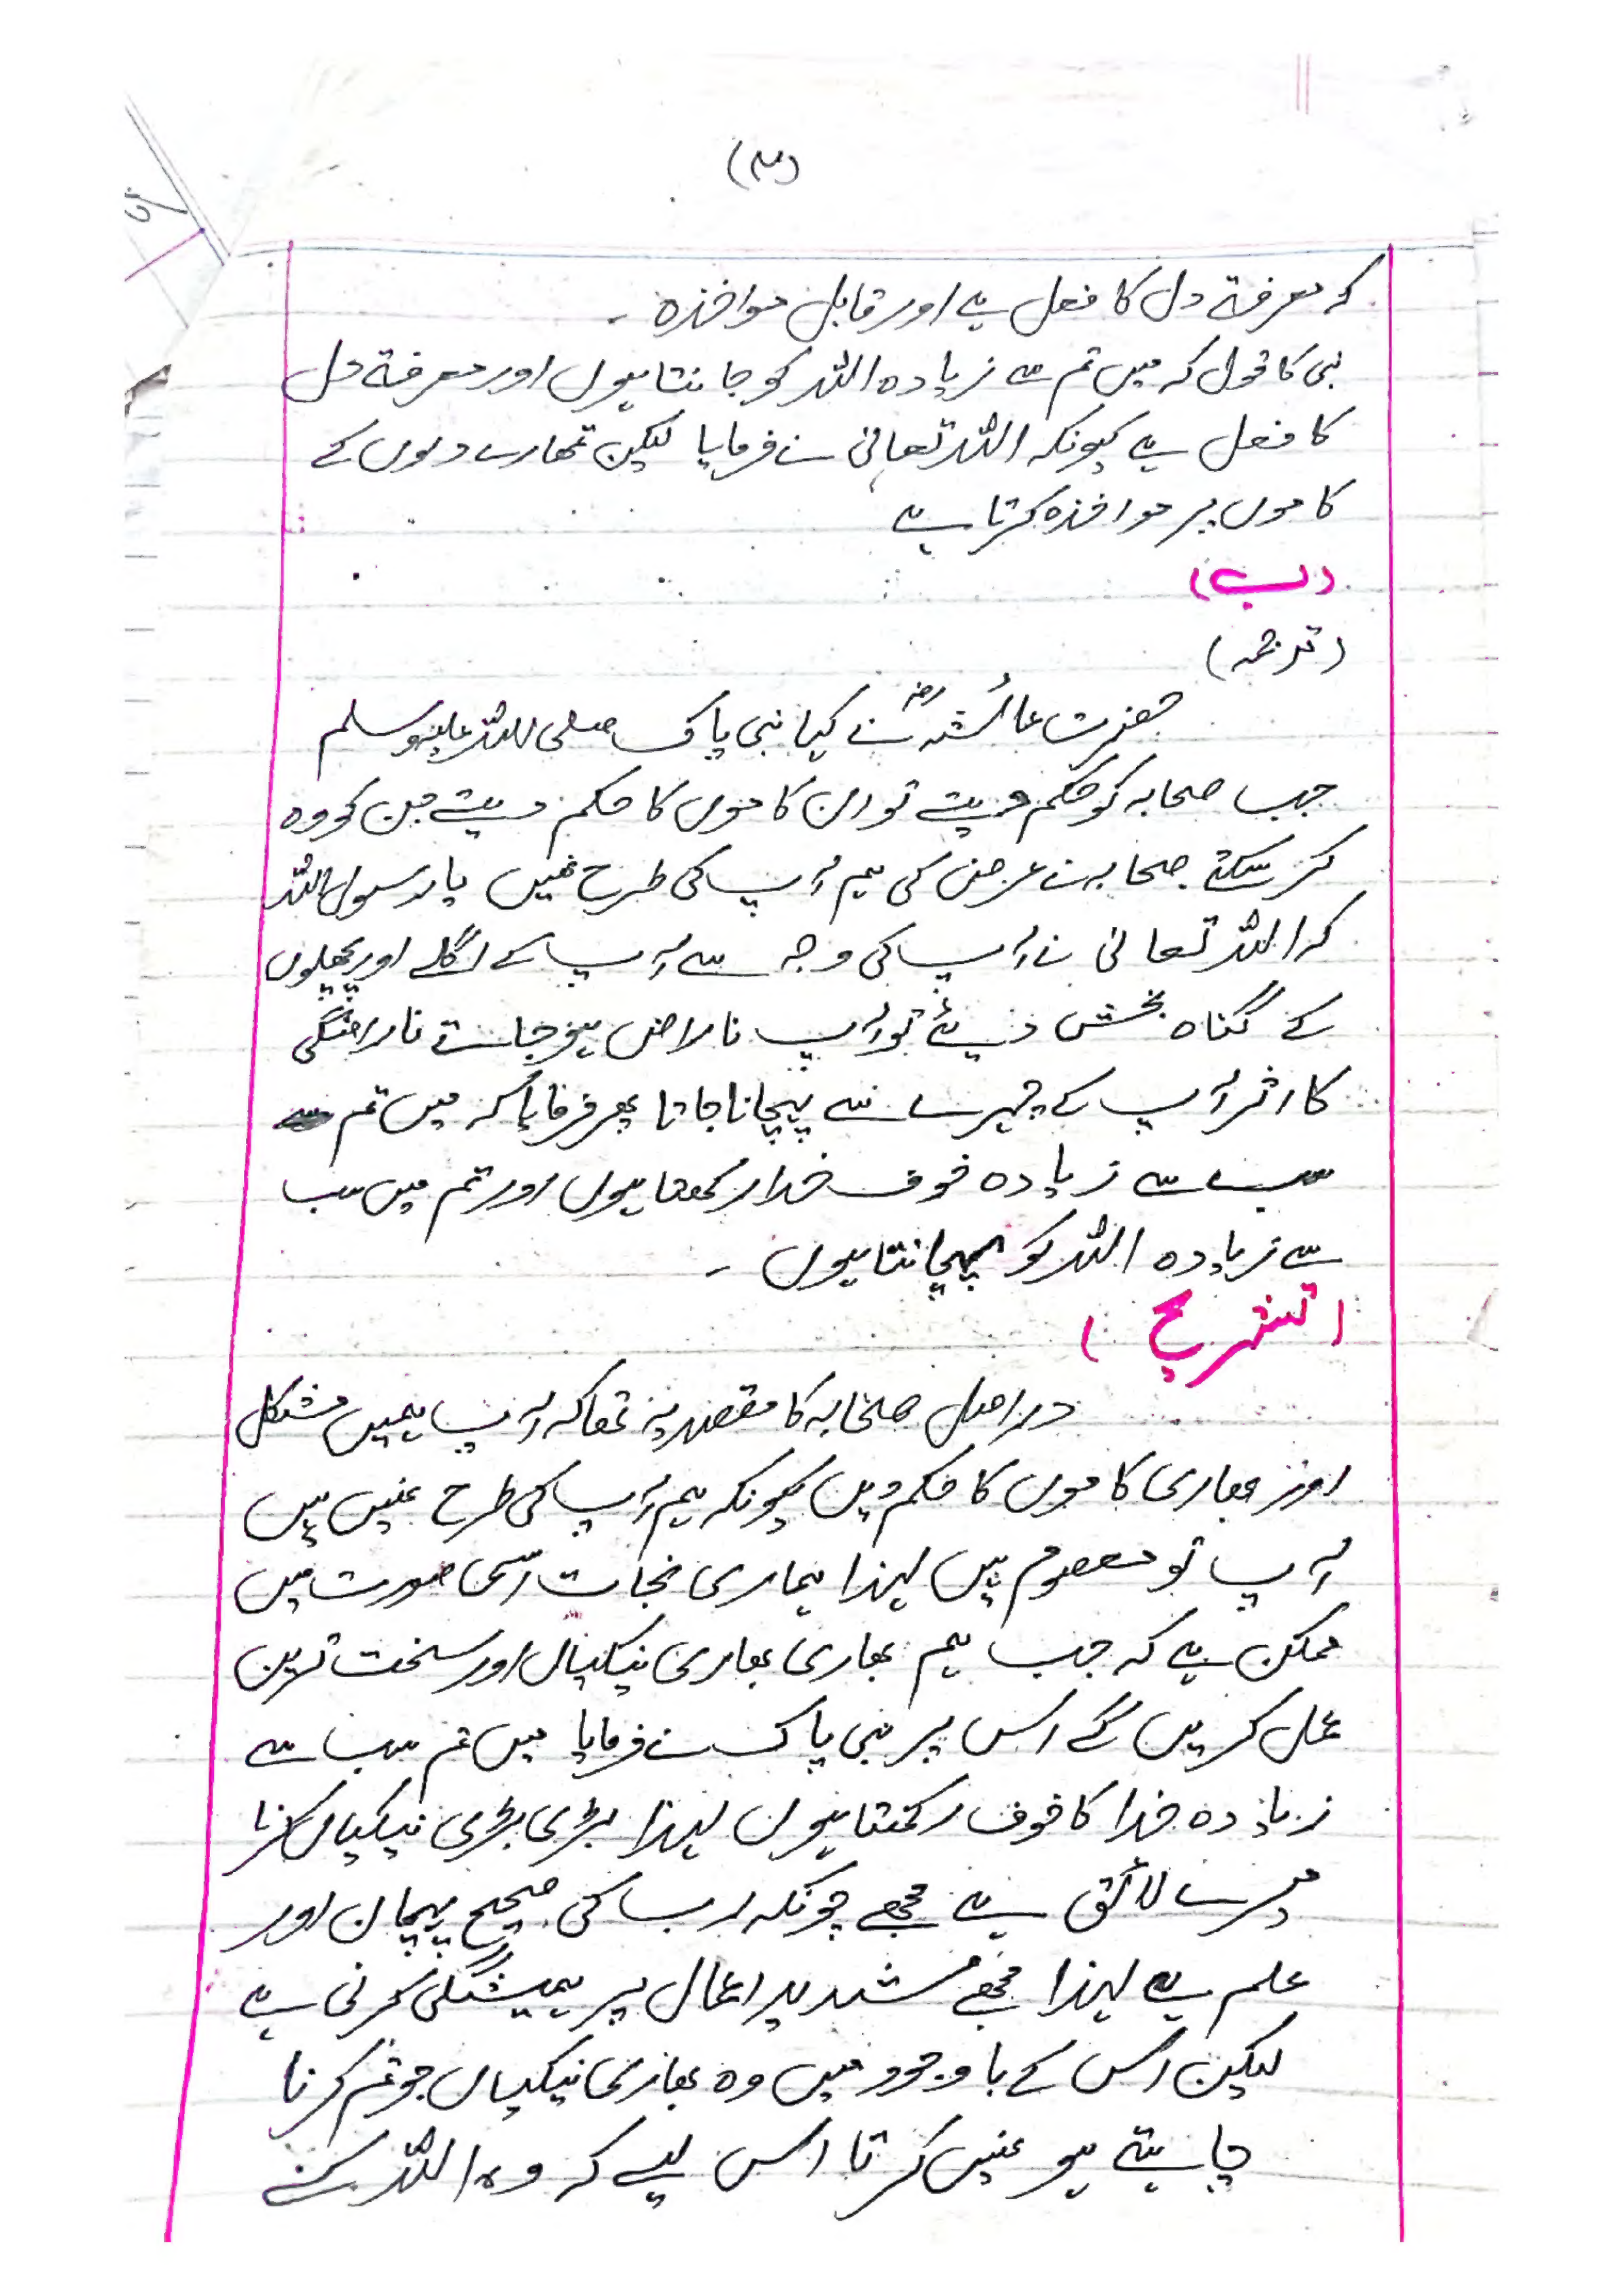 (۳)
کہ معرفۃ دل کا فعل ہے اور قابل مواخذہ ۔
نبی کا قول کہ میں تم سے زیادہ اللہ کو جانتا ہوں اور معرفۃ دل
کا فعل ہے کیونکہ اللہ تعالیٰ نے فرمایا لیکن تمھارے دلوں کے
کاموں پر مواخذہ کرتا ہے
(ب)
(ترجمہ)
حضرت عائشہؓ نے کہا نبی پاک صلی اللہ علیہ وسلم
جب صحابہ کو حکم دیتے تو ان کاموں کا حکم دیتے جن کو وہ
کر سکتے صحابہ نے عرض کی ہم آپ کی طرح نہیں یا رسول اللہ
کہ اللہ تعالیٰ نے آپ کی وجہ سے آپ کے اگلے اور پچھلوں
کے گناہ بخش دیئے تو آپ ناراض ہو جاتے ناراضگی
کا اثر آپ کے چہرے سے پہچانا جاتا پھر فرمایا کہ میں تم
سب سے زیادہ خوف خدا رکھتا ہوں اور تم میں سب
سے زیادہ اللہ کو پہچانتا ہوں ۔
(تشریح)
در اصل صحابہ کا مقصد یہ تھا کہ آپ ہمیں مشکل
اور بھاری کاموں کا حکم دیں کیونکہ ہم آپ کی طرح نہیں ہیں
آپ تو معصوم ہیں لہذا ہماری نجات اسی صورت میں
ممکن ہے کہ جب ہم بھاری بھاری نیکیاں اور سخت ترین
عمل کریں گے اس پر نبی پاک نے فرمایا میں تم سب سے
زیادہ خدا کا خوف رکھتا ہوں لہذا بڑی بڑی نیکیاں کرنا
میرے لائق ہے مجھے چونکہ رب کی صحیح پہچان اور
علم ہے لہذا مجھے شدید اعمال پر ہمیشگی کرنی ہے
لیکن اس کے باوجود میں وہ بھاری نیکیاں جو تم کرنا
چاہتے ہو نہیں کرتا اس لیے کہ وہ اللہ کے